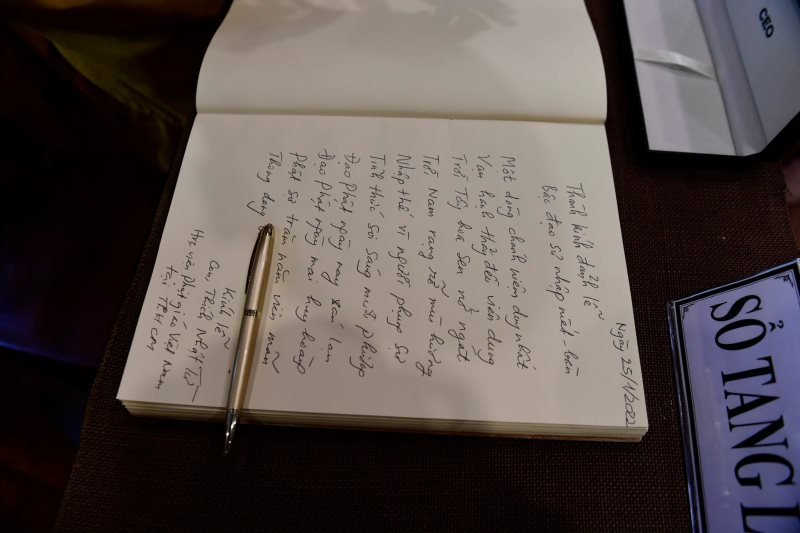 Ngày 25/1/2022
Thành kính đảnh lễ
bậc đạo sư nhập niết-bàn
Một dòng chánh niệm duy nhất
Vận hành thảy đều viên dung
Trời Tây hoa sen nở ngát
Trời Nam rạng rỡ mùi hương
Nhập thế vì người phụng sự
Tỉnh thức soi sáng mười phương
Đạo Phật ngày nay xán lạn
Đạo Phật ngày mai huy hoàng
Phật sự trăm năm viên mãn
Thong dong
Kính lễ
Con, Thích Nhật Từ
Học viện Phật giáo Việt Nam
tại TP.HCM
CEO
SỔ TANG L